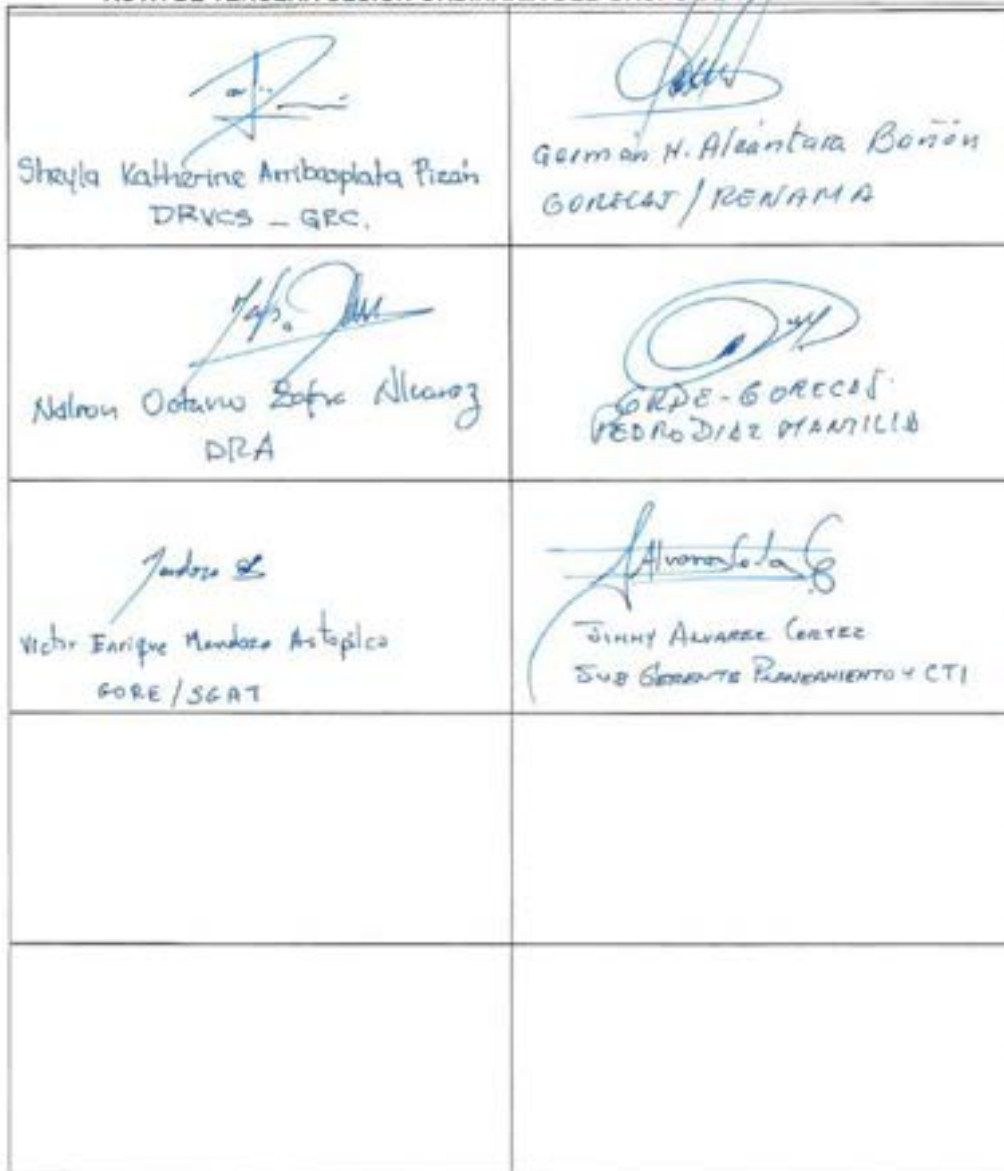 Sheyla Katherine Arribasplata Pizán
DRVCS - GRC.
Germán H. Alcántara Boñón
GORECAJ / RENAMA
Octavio
DRA
GRDE - GORECAJ
PEDRO DIAZ MANTILLA
Victor Enrique Mendoza Astopilco
GORE / SGAT
JIMMY ALVAREZ CORTEZ
SUB GERENTE PLANEAMIENTO Y CTI